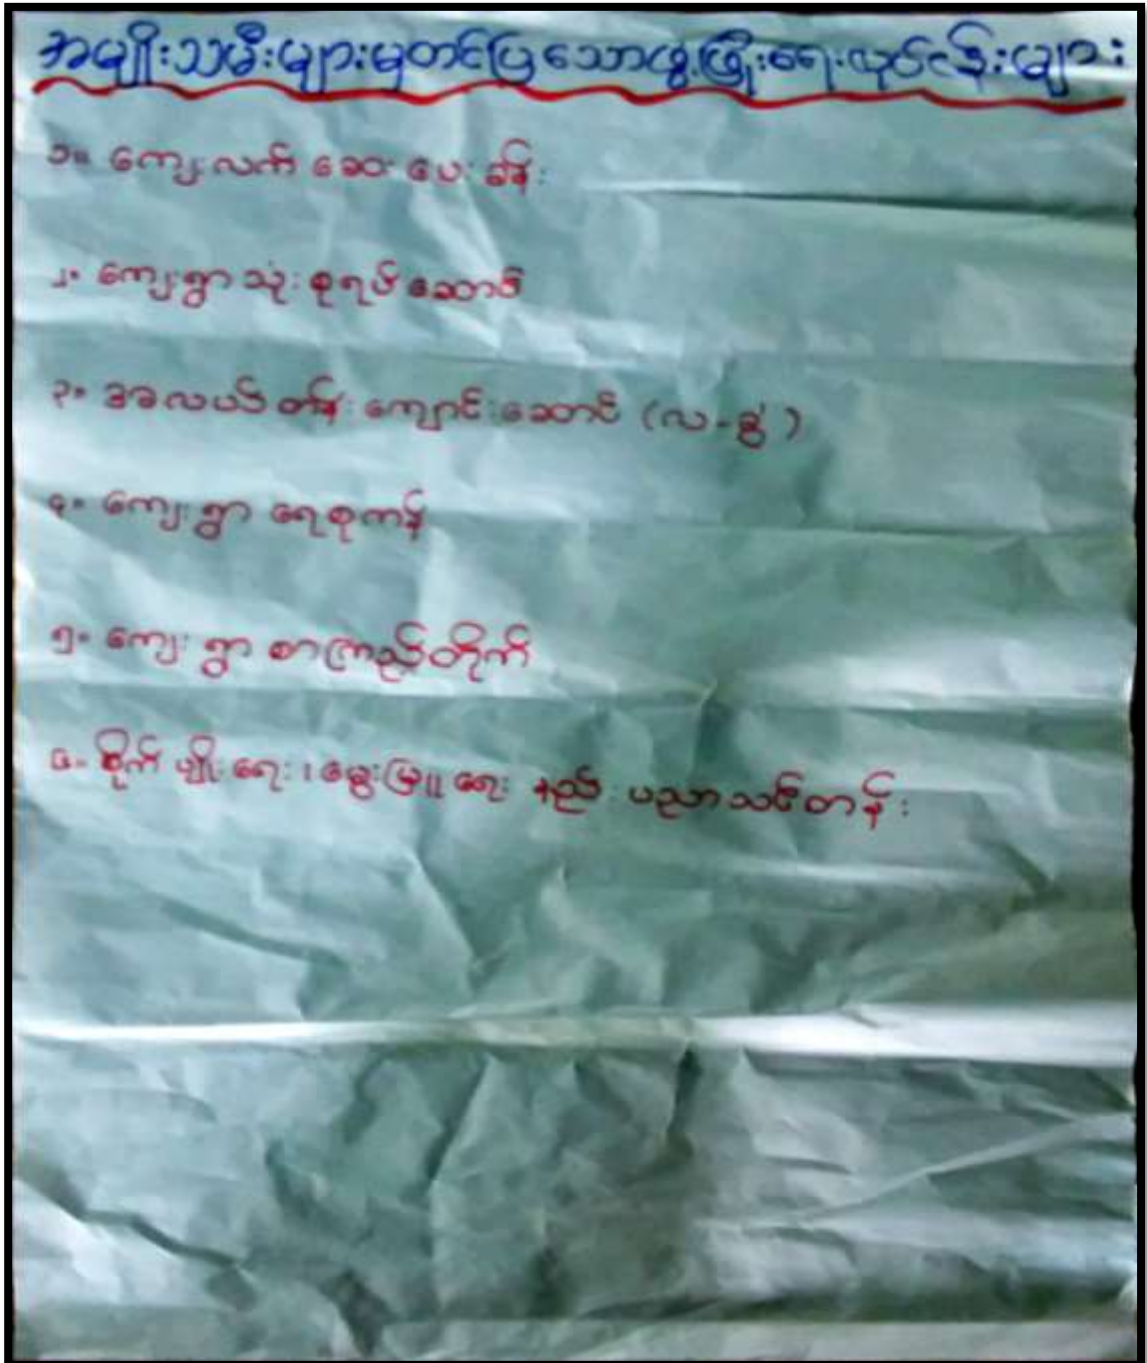 အမျိုးသမီးများမှတင်ပြသောဖွံ့ဖြိုးရေးလုပ်ငန်းများ
၁။ ကျေးလက် ဆေးပေးခန်း
၂။ ကျေးရွာသုံးစုရပ်ဆောင်
၃။ အလယ်တန်းကျောင်းဆောင် (လ-ခွဲ)
၄။ ကျေးရွာ ရေစုကန်
၅။ ကျေးရွာ စာကြည့်တိုက်
၆။ စိုက်ပျိုးရေး၊ မွေးမြူရေး နည်းပညာသင်တန်း